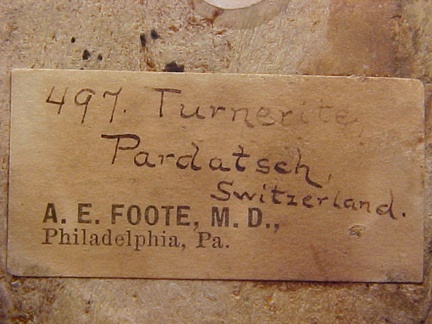 497. Turnerite,
Pardatsch,
Switzerland.
A. E. FOOTE, M. D.,
Philadelphia, Pa.